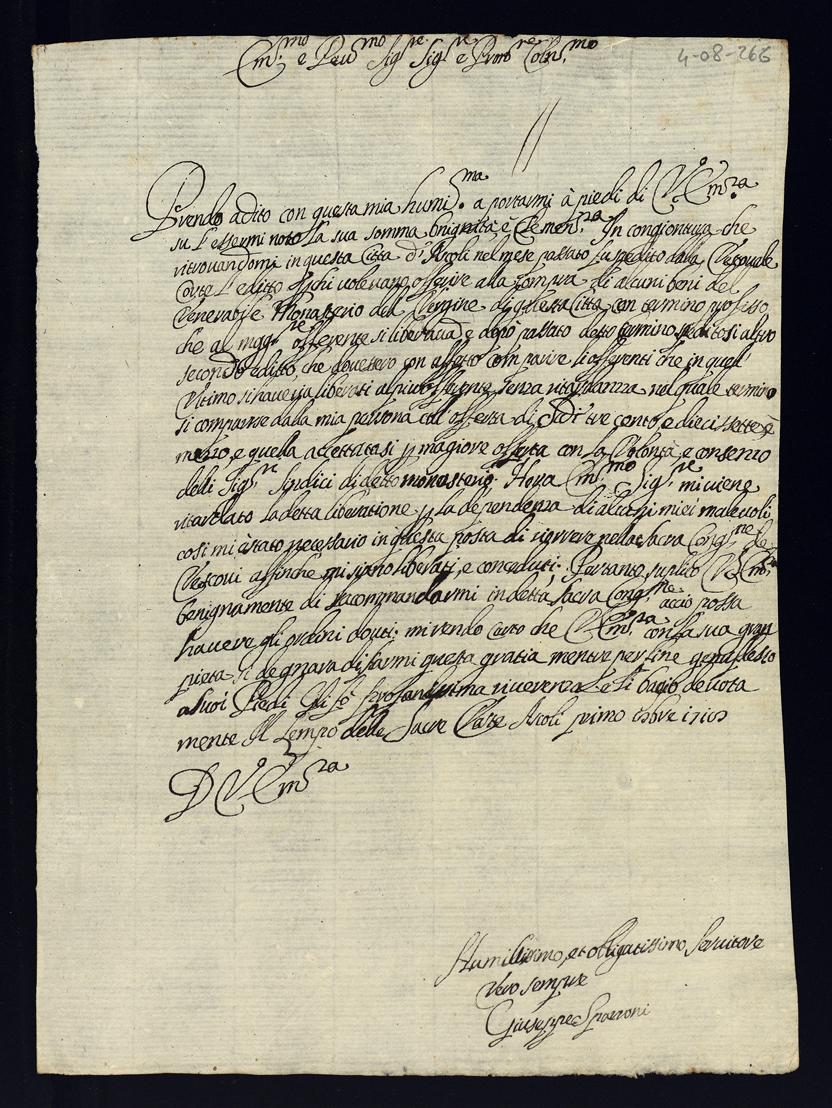 4-08-266
Em.mo e Reu.mo Sig.re Sig.re e Pron.e Coln.mo
Prendo adito con questa mia humil.ma a portarmi à piedi di V. Em.za
su l'essermi noto la sua somma benignità è Clemen.za In congiontura che
ritrouandomi in questa Città d'Ascoli nel mese passato fu spedito dalla Vescouale
Corte l'editto chi uolessano offerire alla compra di alcuni beni del
Venerabile Monasterio del Vergine di questa Città con termino
che al magg.re offerente si liberaua, e dopò passato detto termino seditosi altro
secondo editto, che douessero con effetto comparire li offerenti che in quell'
Vltimo si haueria liberati al piu offerente senza nel quale termino
si comparse dalla mia persona col offerta di tre cento, e diecissette è
mezzo, e quella accettatasi p magiore offerta con la Volontà, e consenzo
delli Sig.ri Sindici di detto monasterio. Hora Em.mo Sig.re mi uiene
ritardato la detta liberatione p la dependenza di alcuni miei maleuoli
così mi è stato necessario in questa posta di ricorrere nella Sacra Cong.ne de
Vescoui affinche mi siano liberati, e conceduti. Pertanto suplico V. Em.za
benignamente di racommandarmi in detta Sacra Cong.ne acciò possa
hauere gli ordini douti. mi rendo certo che V. Em.za con la sua gran
pietà si degnarà di farmi questa gratia mentre per fine
a suoi Piedi Gli fò profondissima riuerenza e li bacio deuota
mente Il Lempo delle Sacre Veste Ascoli primo
D V. Em.za
Humilissimo, et obligatissimo Seruitore
Vero sempre
Giuseppe Sparroni